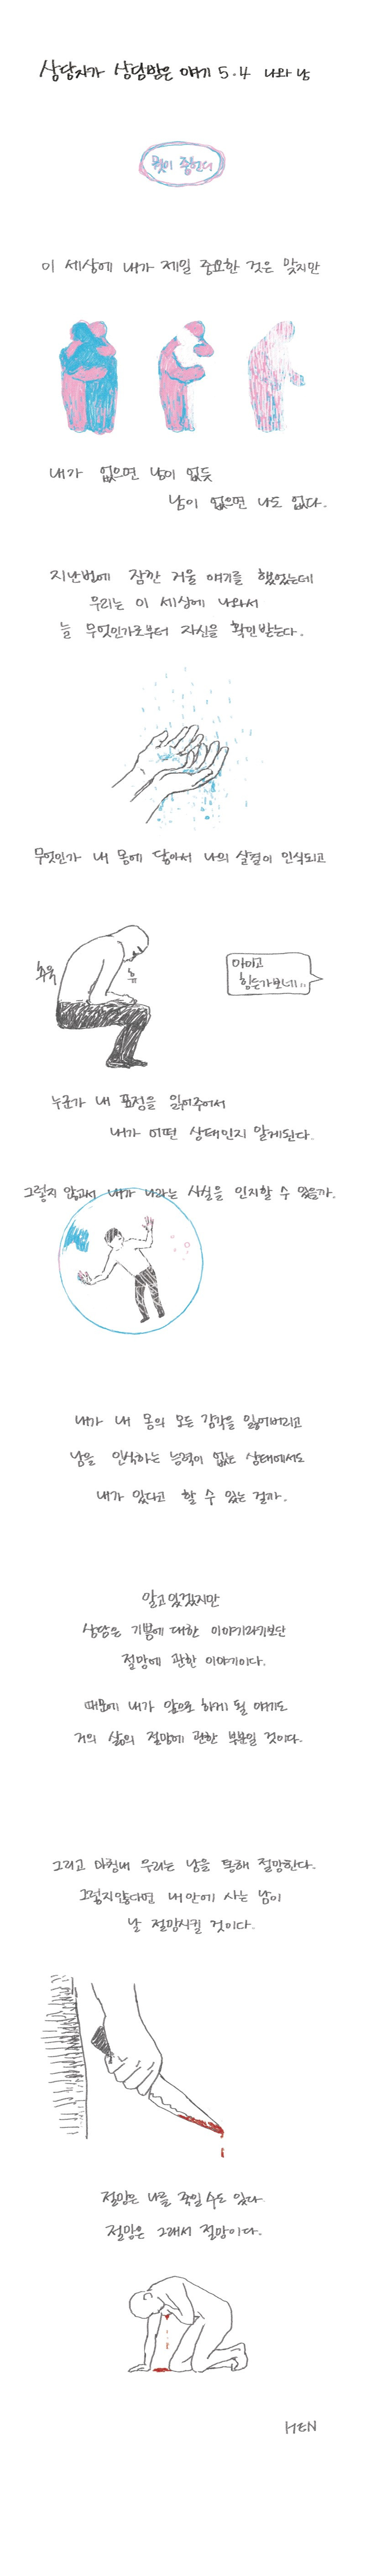 상담자가 상담받은 얘기 5.4 나와 남
뭣이 중헌디
이 세상에 내가 제일 중요한 것은 맞지만
내가 없으면 남이 없듯
남이 없으면 나도 없다.
지난번에 잠깐 거울 얘기를 했었는데
우리는 이 세상에 나와서
늘 무엇인가로부터 자신을 확인받는다.
무엇인가 내 몸에 닿아서 나의 살결이 인식되고
추욱
휴
아이고
힘든가보네..
누군가 내 표정을 읽어주어서
내가 어떤 상태인지 알게된다.
그렇지 않고서 내가 나라는 사실을 인지할 수 있을까.
내가 내 몸의 모든 감각을 잃어버리고
남을 인식하는 능력이 없는 상태에서도
내가 있다고 할 수 있는 걸까.
알고 있겠지만
상담은 기쁨에 대한 이야기라기보단
절망에 관한 이야기이다.
때문에 내가 앞으로 하게 될 얘기도
거의 삶의 절망에 관한 부분일 것이다.
그리고 마침내 우리는 남을 통해 절망한다.
그렇지않다면 내 안에 사는 남이
날 절망시킬 것이다.
절망은 나를 죽일 수도 있다
절망은 그래서 절망이다.
HEN